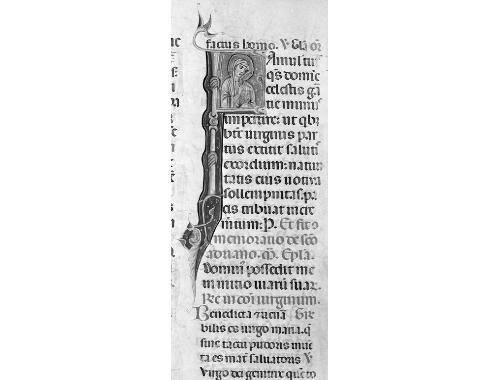 factus homo. V
Famulis tuis
qs domine
celestis gra
tie munus
impertire: ut qbz
bte virginis par
tus extitit salutis
exordium: nativi
tatis eius votiva
sollempnitas. pa
cis tribuat incre
mentum: P. Et fit co
memoratio de sco
adriano. Epla.
Dominus possedit me
in initio viarum suarum.
Re in coi virginum.
Benedicta et vene
bilis es virgo maria. q
sine tactu pudoris inve
ta es mater salvatoris V
Virgo dei genitrix que to